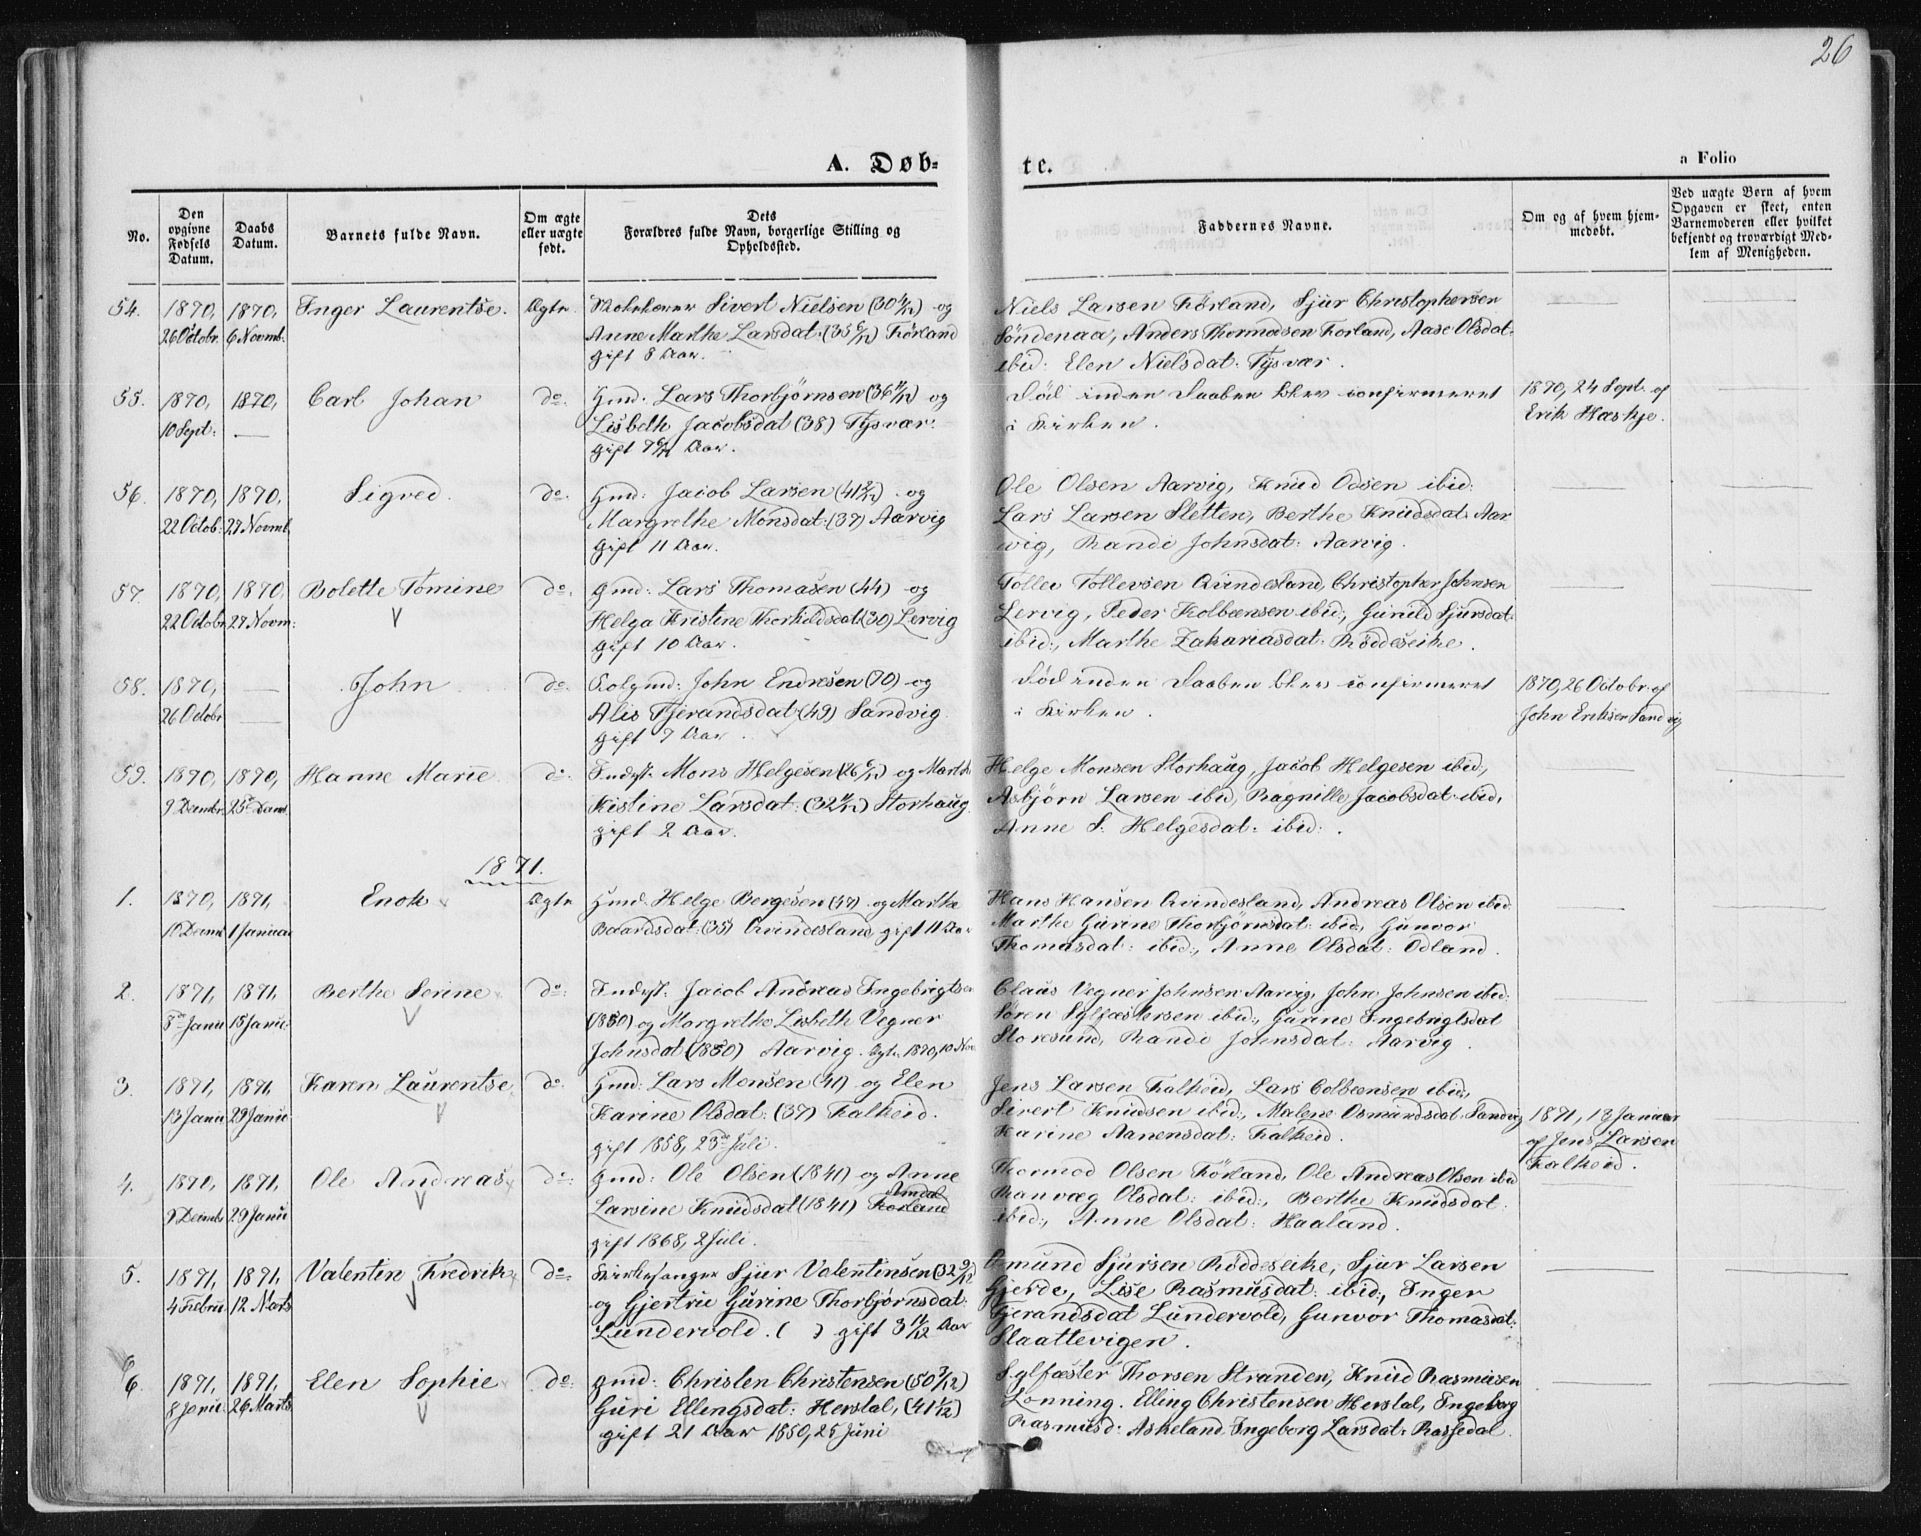 26
A. Døb-
te.
a Folio
No.
Den opgivne Fødsels Datum.
Daabs Datum.
Barnets fulde Navn.
Om ægte eller uægte født.
Dets Forældres fulde Navn, borgerlige Stilling og Opholdssted.
Faddernes Navne.
Om og af hvem hjemmedøbt.
Ved uægte Børn af hvem Opgaven er skeet, enten Barnemoderen eller hvilket bekjendt og troværdigt Medlem af Menigheden.
54. 1870, 1870, Inger Laurentse. Ægte. Sivert Nielsen (30 4/12) og
26 Octobr. 6 Novmb. Anne Marthe Larsdat: (35 6/12) Førland
gift 8 Aar.
Niels Larsen Førland, Sjur Christophersen
Søndenaa, Anders Thormodsen Førland, Aase Olsdat:
ibid: Elen Nielsdat: Tysvær.
55. 1870, 1870, Carl Johan do. Gmd: Lars Thorbjørnsen (36 11/12) og
10 Sept: — Lisbeth Jacobsdat (38) Tysvær.
gift 7 6/12 Aar.
Død inden Daaben blev confirmeret
i Kirken.
1870, 24 Sept. af
Erik Hæskje.
56. 1870, 1870, Sigved. do. Gmd: Jacob Larsen (41 2/12) og
22 Octob: 27 Novmb. Margrethe Monsdat: (37) Aarvig
Gift 11 Aar.
Ole Olsen Aarvig, Knud Odsen ibid:
Lars Larsen Sletten, Berthe Knudsdat: Aar
vig, Randi Johnsdat: Aarvig.
57. 1870, 1870, Bolette Tomine do. Gmd: Lars Thomasen (44) og
22 Octobr 27 Novm: Helga Kristine Thorkildsdat (30) Lervig
gift 10 Aar.
Tollev Tollevsen Qvindesland, Christopher Johnsen
Lervig, Peder Kolbeensen ibid:, Gunild Sjursdat:
ibid:, Marthe Zakariasdat: Røddeseike.
58. 1870, — John do. Gmd: John Endresen (70) og
26 Octobr — Alis Tjerandsdat (49) Sandvig
gift 7 Aar.
Død inden Daaben blev confirmeret
i Kirken.
1870, 26 Octobr. af
John Eriksen Sandvig
59. 1870, 1870, Hanne Marie do. Indst: Mons Helgesen (26 6/12) og Marthe
9 Decmbr. 25de Decmb. Kistine Larsdat: (32 4/12) Storhaug.
gift 2 Aar.
Helge Monsen Storhaug, Jacob Helgesen ibid:,
Asbjørn Larsen ibid, Ragnille Jacobsdat: ibid,
Anne S: Helgesdat: ibid:.
1871.
1. 1870, 1871, Enok Ægte Gmd: Helge Bergesen (47) og Marthe
10 Decmb 1 Januar Baardsdat: (35) Qvindesland gift 11 Aar
Hans Hansen Qvindesland, Andreas Olsen ibid.
Marthe Gurine Thorbjørnsdat: ibid, Gunvor
Thomasdat: ibid:, Anne Olsdat: Odland.
2. 1871, 1871, Berthe Serine do. Indst: Jacob Andreas Ingebrigtsen
Janu 15 Janu: (1850) og Margrethe Lisbeth Vegner
Johnsdat (1850) Aarvig. Ægte 1870, 10 Nov
Claus Vegner Johnsen Aarvig, John Johnsen ibid:
Søren Sylfæstersen ibid:, Gurine Ingebrigtsdat
Storesund, Randi Johnsdat: Aarvig.
3. 1871, 1871, Karen Laurentse, do. Gmd: Lars Monsen (41) og Elen
13 Janu 29 Janu: Karine Olsdat: (37) Falkeid.
gift 1858, 23de Juli.
Jens Larsen Falkeid, Lars Colbeensen ibid:,
Sivert Knudsen ibid:, Malene Osmundsdat: Sandvig
Karine Aanensdat: Falkeid.
1871, 13 Januar
af Jens Larsen
Falkeid.
4. 1870, 1871, Ole Andreas do. Gmd: Ole Olsen (1841) og Anne
9 Decmb 29 Janu Larsine Knudsdat (1841) Førland Amdal
gift 1868, 2 Juli.
Thormod Olsen Førland, Ole Andreas Olsen ibid
Ranvæg Olsdat: ibid:, Berthe Knudsdat:
ibid:, Anne Olsdat: Haaland.
5. 1871, 1871, Valentin Fredrik do. Kirkesanger Sjur Valentinsen (32 9/12)
4 Febru 12 Marts og Gjertru Gurine Thorbjørnsdat:
Lundervold. ( ) gift 3 11/12 Aar
Omund Sjursen Røddeseike, Sjur Larsen
Gjerde, Lise Rasmusdat: ibid:, Inger
Gjerandsdat Lundervold, Gunvor Thomasdat:
Slaattevigen.
6. 1871, 1871, Elen Sophie do. gmd: Christen Christensen (50 3/12)
8 Janu: 26 Marts Guri Ellingsdat: Herstal, (41 1/12)
gift 21 Aar 1850, 25 Juni
Sylfæster Thorsen Stranden, Knud Rasmusen
Lonning. Elling Christensen Herstal, Ingeborg
Rasmusd: Askeland Ingeborg Larsdat: Rassedal.